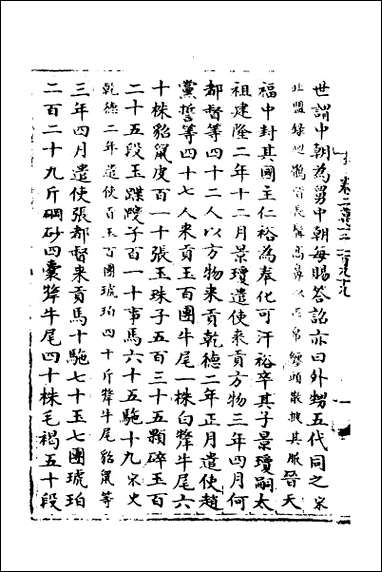 世謂中朝為舅中朝每賜答詔亦曰外甥五代同之宋
福中封其國主仁裕為奉化可汗裕卒其子景瓊嗣太
祖建隆二年十二月景瓊遣使來貢方物三年四月何
都督等四十二人以方物來貢乾德二年正月遣使趙
黨誓等四十七人來貢玉百團牛尾一株白犛牛尾六
十株貂鼠度百一十張玉珠子五百三十五顆碎玉百
二十五段玉蹀躞子百一十事馬六十五駞十九宋史
乾德二年遣使貢玉百團琥珀四十斤犛牛尾貂鼠等
三年四月遣使張都督來貢馬十駞七十玉七團琥珀
二百二十九斤碙砂四囊犛牛尾四十株毛褐五十段